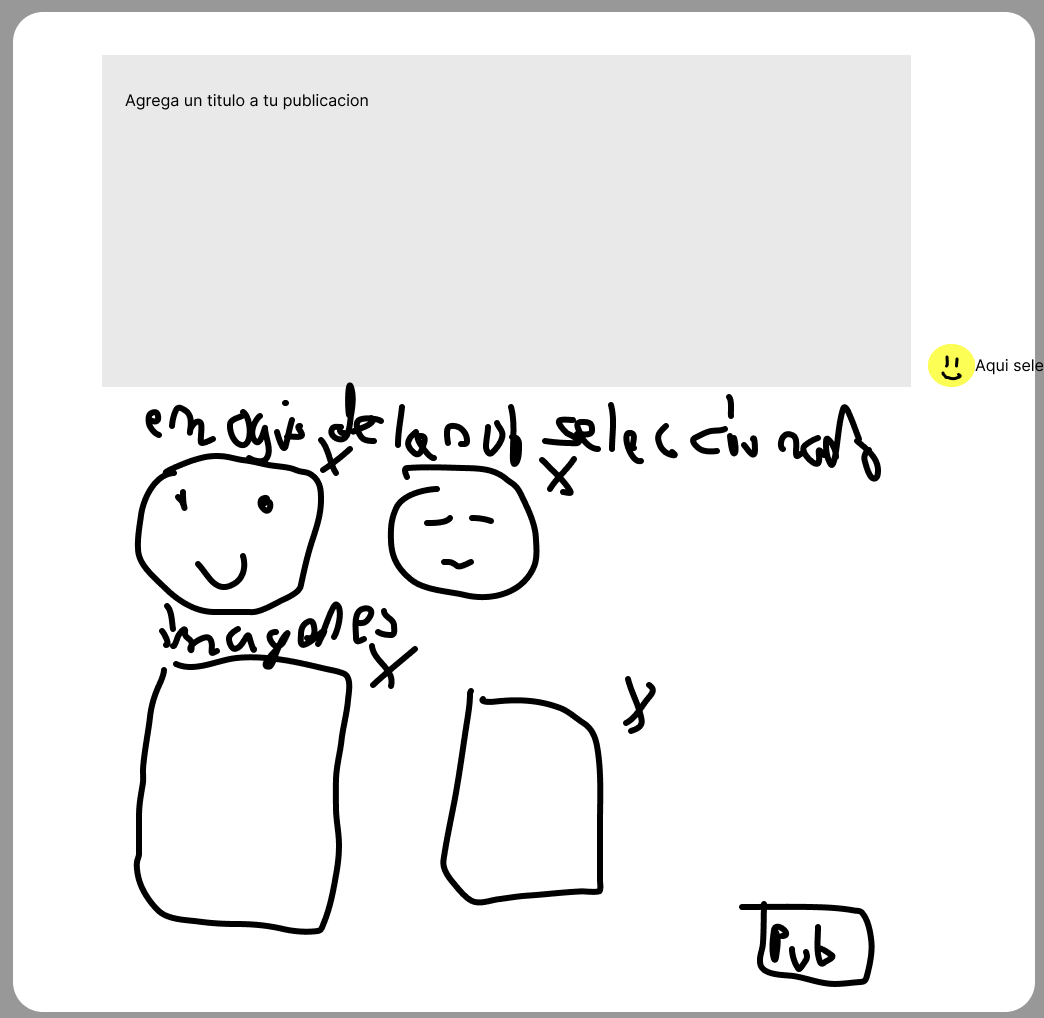 Agrega un titulo a tu publicacion
Aqui sele
emogis de la pub seleccionado
imagenes
Pub